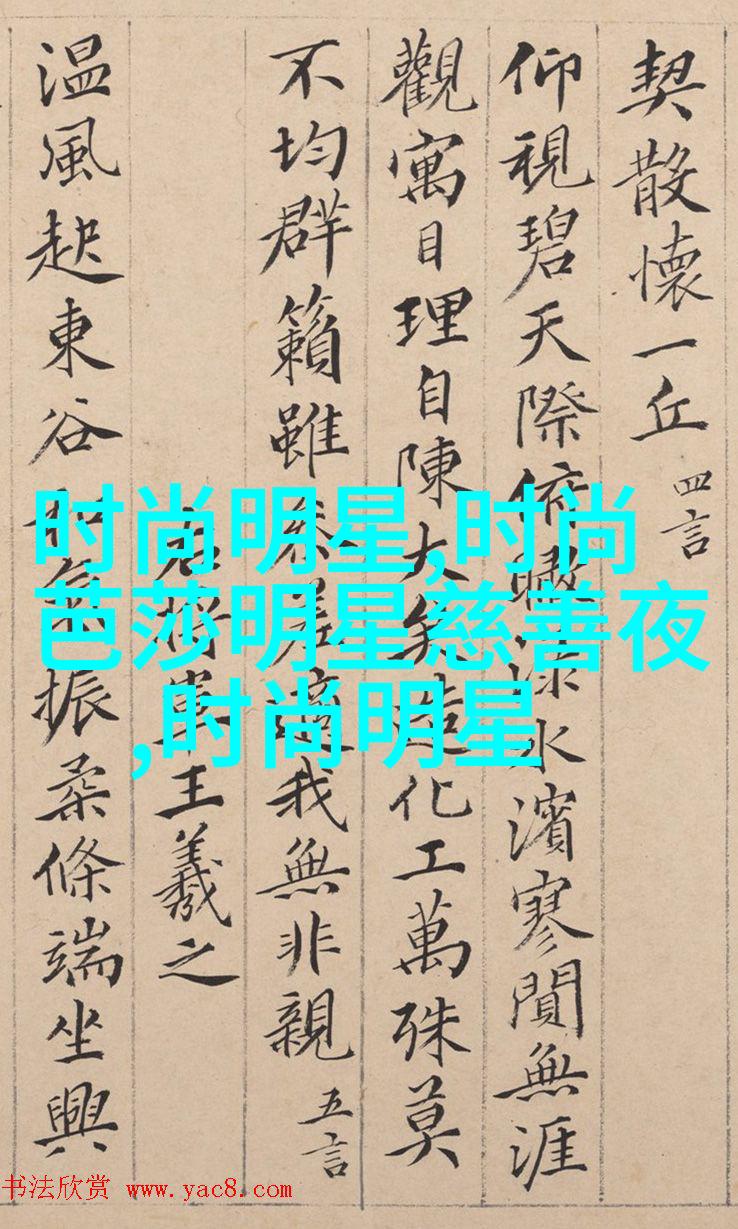 契散懷一丘 四言
仰視碧天際俯瞰渌水濱寥閴無涯
觀寓目理自陳大矣造化工萬殊莫
不均群籟雖參差適我無非親 五言
右將軍王羲之
温風起東谷和氣振柔條端坐興
时尚明星,时尚
芭莎明星慈善夜
,时尚明星
书法欣赏 www.yac8.com